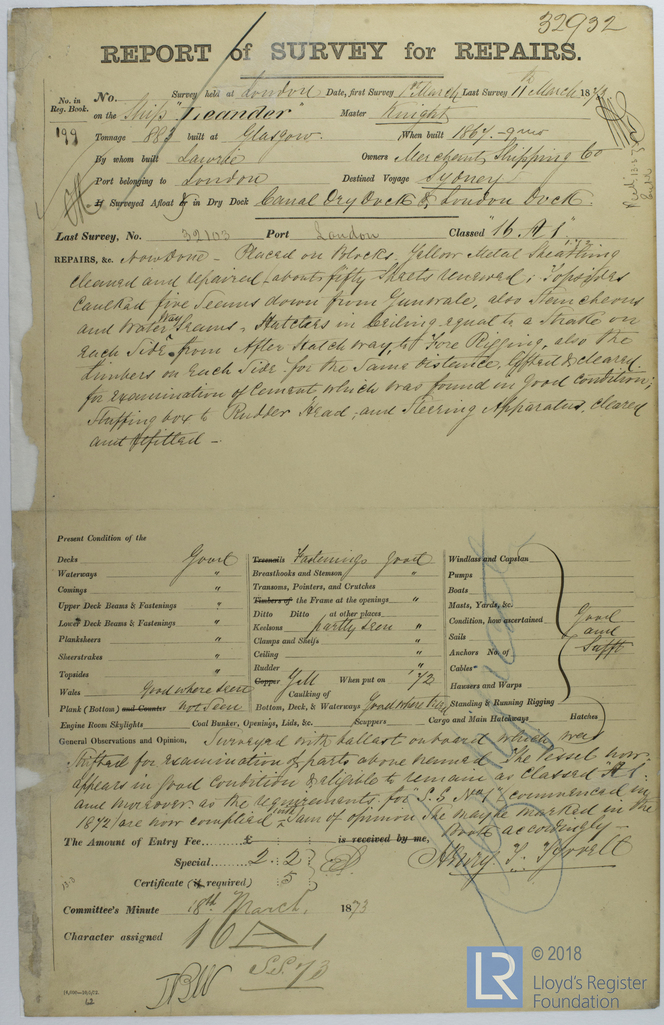 32932
REPORT of SURVEY for REPAIRS.
No. in Reg. Book.
199
No. Survey held at London Date, first Survey 1st March Last Survey 11th March 1873
on the Ship "Leander" Master Knight
Tonnage 883 built at Glasgow. When built 1867. - 9 mo
By whom built Lawrie Owners Merchant Shipping Co
Port belonging to London Destined Voyage Sydney
If Surveyed Afloat or in Dry Dock Canal Dry Dock & London Dock.
Last Survey, No. 32103 Port London Classed "16 A 1"
REPAIRS, &c. Now Done - Placed on Blocks. Yellow Metal Sheathing
cleaned and repaired, about fifty Sheets renewed; Topsides
Caulked five Seams down from Gunwale, also Stancheons
and Water Way Seams. Hatches in Ceiling equal to a Strake on
each Side from After Hatchway to Fore Rigging, also the
limbers on each Side for the Same distance, lifted & cleared
for examination of Cement which was found in good condition;
Stuffing box to Rudder Head, and Steering Apparatus, cleared
and refitted -
Present Condition of the
Decks Good
Waterways "
Comings "
Upper Deck Beams & Fastenings "
Lower Deck Beams & Fastenings "
Planksheers "
Sheerstrakes "
Topsides "
Wales Good where seen
Plank (Bottom) and Counter not Seen
Treenails Fastenings good
Breasthooks and Stemson "
Transoms, Pointers, and Crutches
Timbers of the Frame at the openings "
Ditto Ditto at other places
Keelsons partly seen "
Clamps and Shelfs "
Ceiling "
Rudder "
Copper Y M When put on '72
Caulking of
Bottom, Deck, & Waterways Good where tried
Windlass and Capstan
Pumps
Boats
Masts, Yards, &c.
Condition, how ascertained
Sails
Anchors No. of
Cables
Hawsers and Warps
Standing & Running Rigging
Good
and
Sufft
Engine Room Skylights Coal Bunker, Openings, Lids, &c. Scuppers Cargo and Main Hatchways Hatches
General Observations and Opinion, Surveyed with ballast onboard which was
Shifted for examination of parts above named. The Vessel now
appears in good condition & eligible to remain as classed "A1"
and moreover as the requirements for "S.S. No 1" (commenced in
1872) are now complied with I am of opinion she may be marked in the
Book accordingly -
The Amount of Entry Fee... £ : : is received by me,
Special... 2 . 2
Certificate (if required) 5
Henry T. Tyrrell
Committee's Minute 18th March, 1873
Character assigned 16 A 1
S.S. 73
LR
© 2018
Lloyd's Register
Foundation